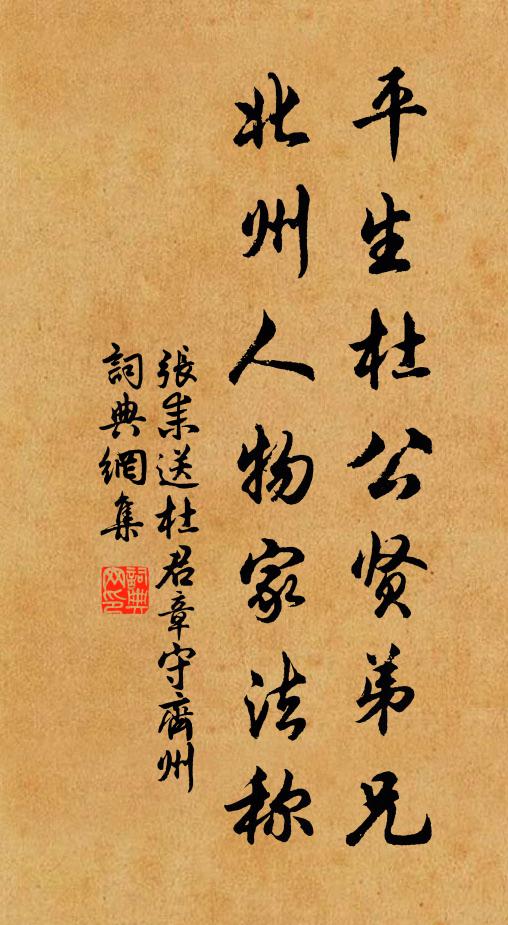 平生杜公贤弟兄
北州人物家法称
張耒送杜君章守齊州
詞典網集
詞典
网印